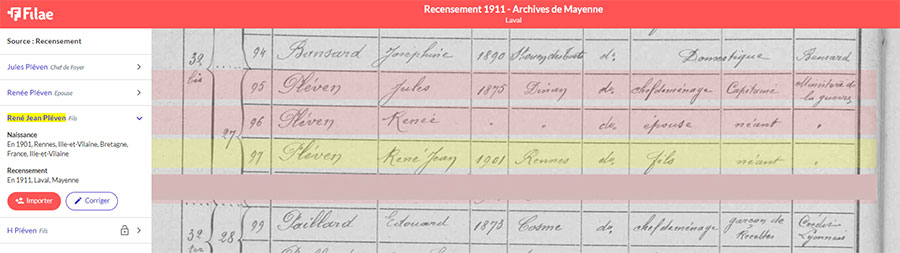 Filae
Recensement 1911 - Archives de Mayenne
Laval
Source : Recensement
Jules Pléven Chef de Foyer
Renée Pléven Epouse
René Jean Pléven Fils
Naissance
En 1901, Rennes, Ille-et-Vilaine, Bretagne,
France, Ille-et-Vilaine
Recensement
En 1911, Laval, Mayenne
Importer Corriger
H Pléven Fils
32 bis 94 Bansard Joséphine 1890 do Domestique Bansard
95 Pléven Jules 1875 Dinan do chef de ménage Capitaine Ministère de la guerre
27 96 Pléven Renée " " do épouse néant "
97 Pléven René Jean 1901 Rennes do fils néant "
32 ter 28 99 Paillard Edouard 1873 Cosme do chef de ménage garçon de Recettes Crédit Lyonnais